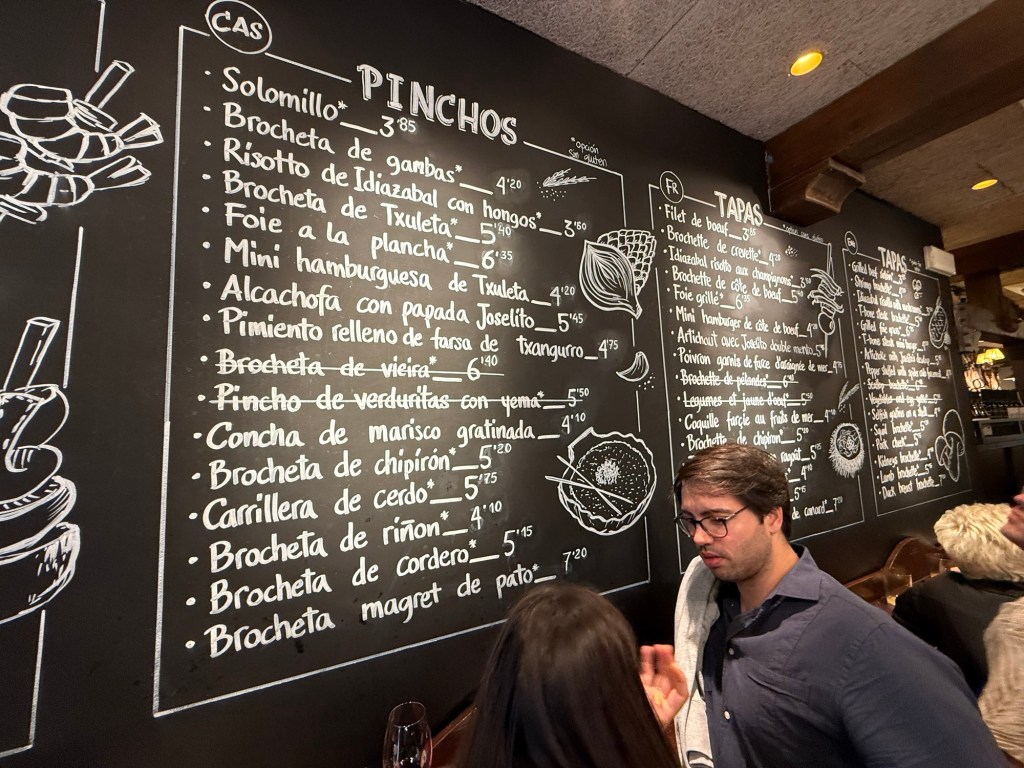 CAS
PINCHOS
*opción
sin gluten
· Solomillo*__3'85
· Brocheta de gambas*__4'20
· Risotto de Idiazabal con hongos*__3'60
· Brocheta de Txuleta*__5'40
· Foie a la plancha*__6'35
· Mini hamburguesa de Txuleta__4'20
· Alcachofa con papada Joselito__5'45
· Pimiento relleno de farsa de txangurro__4'75
· Brocheta de vieira*__6'40
· Pincho de verduritas con yema*__5'50
· Concha de marisco gratinada__4'10
· Brocheta de chipirón*__5'20
· Carrillera de cerdo*__5'75
· Brocheta de riñon*__4'10
· Brocheta de cordero*__5'45
· Brocheta magret de pato*__7'20
FR
TAPAS
· Filet de boeuf__3'85
· Brochette de crevette*__4'20
· Idiazabal risoto aux champignons*__3'60
· Brochette de côte de boeuf__5'40
· Foie grillé*__6'35
· Mini hamburger de côte de boeuf__4'20
· Artichaut avec Joselito double menton__5
· Poivron garnis de farce d'araignée de mer__4'75
· Brochette de pétoncles*__6'40
· Legumes et jaune d'oeuf*__5'50
· Coquille farcie au fruits de mer__4'10
· Brochette de chipiron*__5'20
de canard*__7'20
TAPAS
· Grilled beef
· Shrimp brochette
· Idiazabal risotto with
· T-bone steak brochette
· Grilled foie gras
· T-bone steak mini
· Artichoke with Joselito
· Pepper stuffed with
· Scallop brochette
· Vegetables and egg
· Squid brochette
· Pork cheek
· Kidneys brochette
· Lamb brochette
· Duck breast brochette